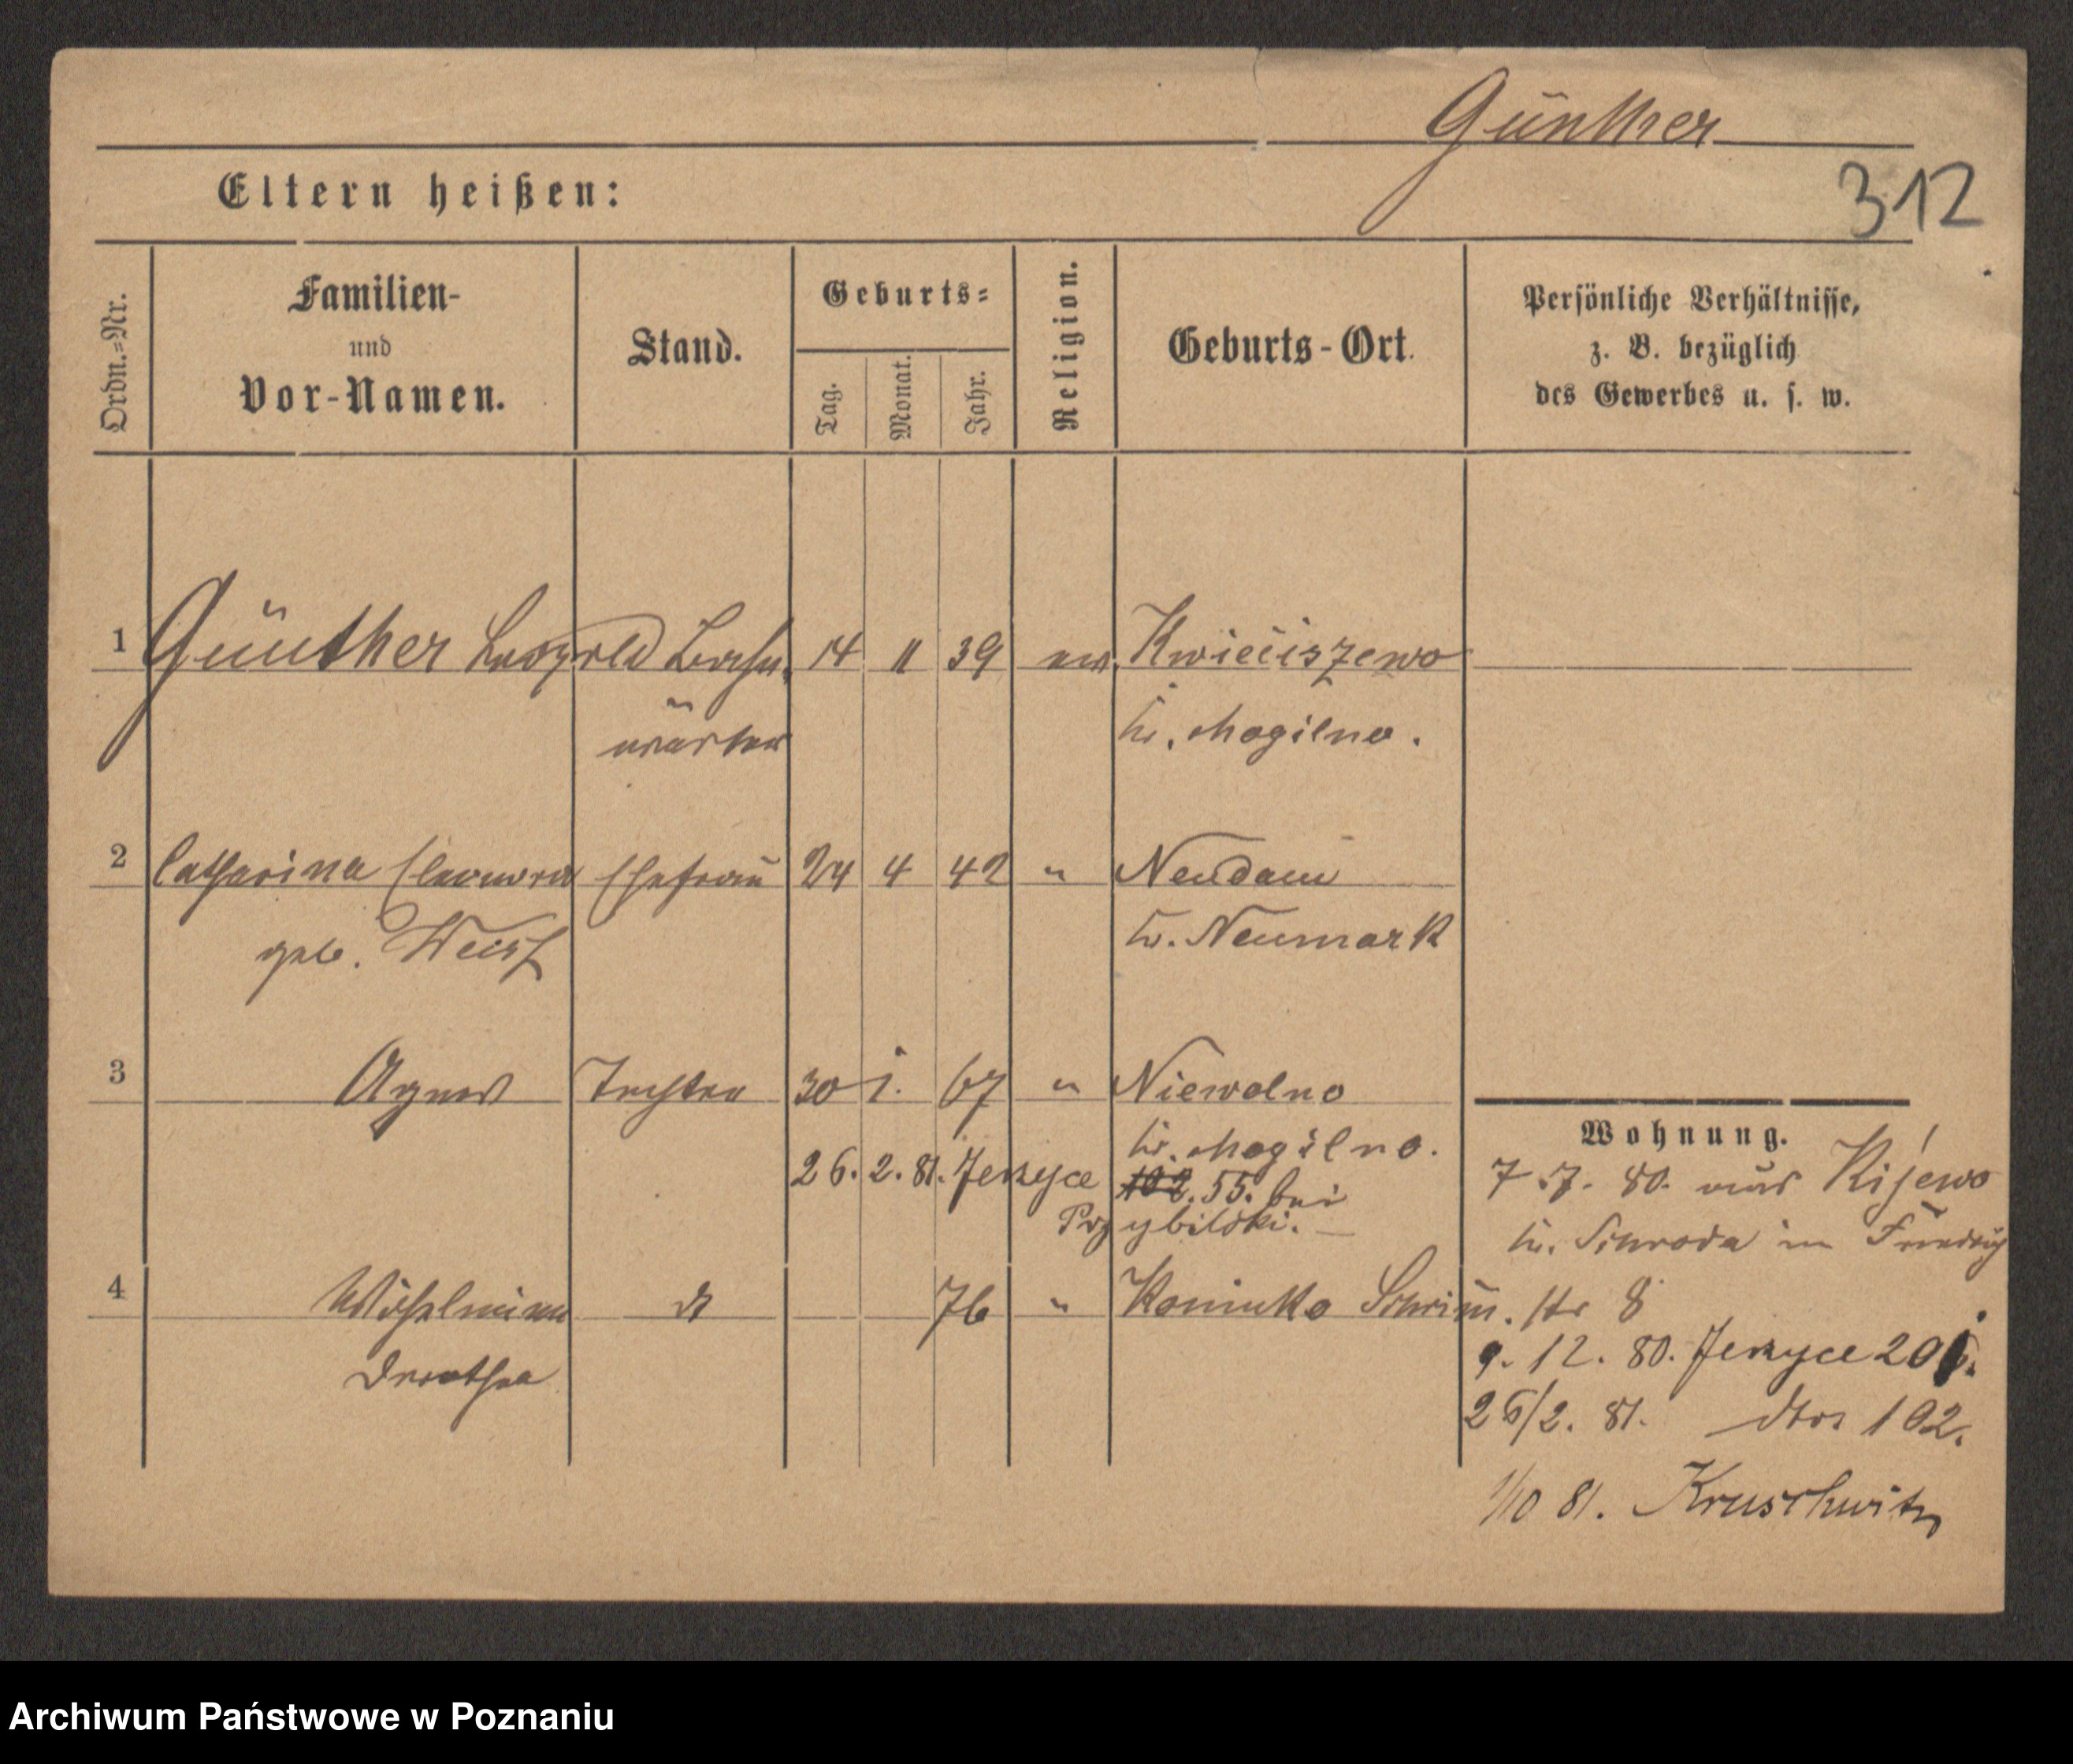 Günther
312
Eltern heißen:
Ordn.=Nr.
Familien-
und
Vor-Namen.
Stand.
Geburts=
Tag.
Monat.
Jahr.
Religion.
Geburts-Ort.
Persönliche Verhältnisse,
z. B. bezüglich
des Gewerbes u. s. w.
1 Günther Leopold Bahn 14 11 39 ev. Kwieciszewo
wärter Kr. Mogilno.
2 Catharina Eleonora Ehefrau 24 4 42 " Neudam
geb. Weiss Kr. Neumark
3 Agnes Tochter 30 1. 67 " Niewolno
Kr. Mogilno.
26. 2. 81. Jerzyce 102. 55. bei
Przybilski.
4 Wilhelmine dt 76 " Koninko Schrim.
Dorothea
Wohnung.
7.7. 80. aus Kijewo
Kr. Schroda in Friedrich
Str 8
9. 12. 80. Jerzyce
26/2. 81. dto 102.
1/10 81. Kruschwitz
Archiwum Państwowe w Poznaniu